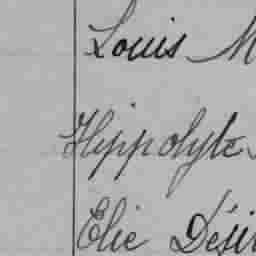 Louis M
Hippolyte
Elie Dési